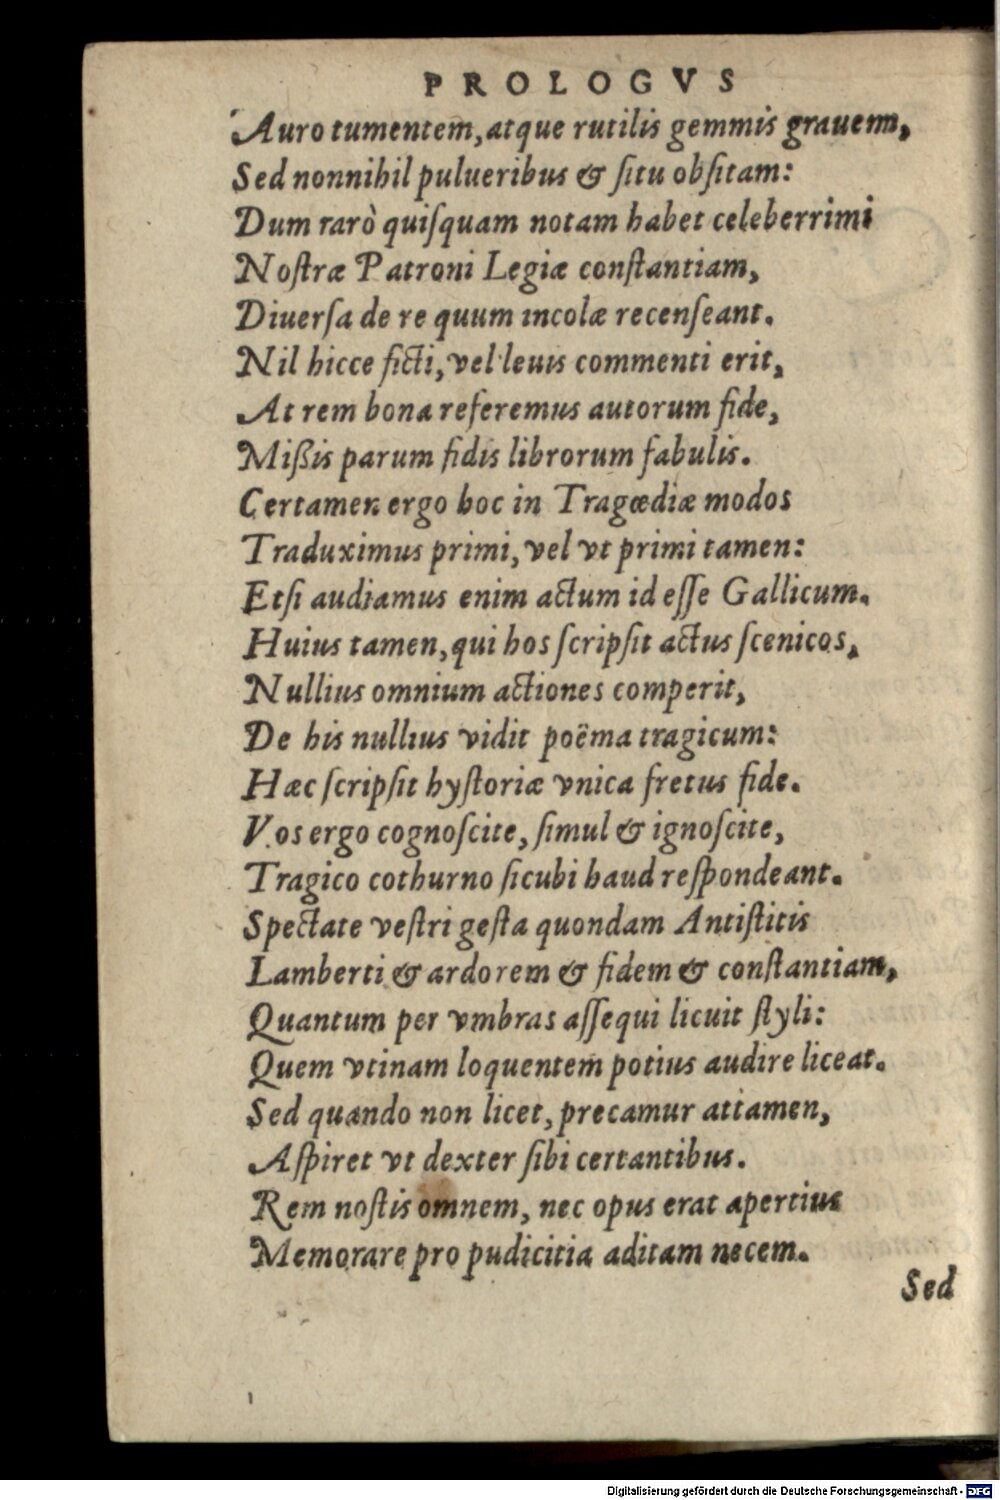 PROLOGVS
Auro tumentem, atque rutilis gemmis grauem,
Sed nonnihil pulueribus & ſitu obſitam:
Dum rarò quiſquam notam habet celeberrimi
Noſtræ Patroni Legiæ conſtantiam,
Diuerſa de re quum incolæ recenſeant.
Nil hicce ficti, vel leuis commenti erit,
At rem bona referemus autorum fide,
Mißis parum fidis librorum fabulis.
Certamen ergo hoc in Tragœdiæ modos
Traduximus primi, vel vt primi tamen:
Etſi audiamus enim actum id eſſe Gallicum.
Huius tamen, qui hos ſcripſit actus ſcenicos,
Nullius omnium actiones comperit,
De his nullius vidit poëma tragicum:
Hæc ſcripſit hyſtoriæ vnica fretus fide.
Vos ergo cognoſcite, ſimul & ignoſcite,
Tragico cothurno ſicubi haud reſpondeant.
Spectate veſtri geſta quondam Antiſtitis
Lamberti & ardorem & fidem & conſtantiam,
Quantum per vmbras aſſequi licuit ſtyli:
Quem vtinam loquentem potius audire liceat.
Sed quando non licet, precamur attamen,
Aſpiret vt dexter ſibi certantibus.
Rem noſtis omnem, nec opus erat apertius
Memorare pro pudicitia aditam necem.
Sed
Digitalisierung gefördert durch die Deutsche Forschungsgemeinschaft - DFG